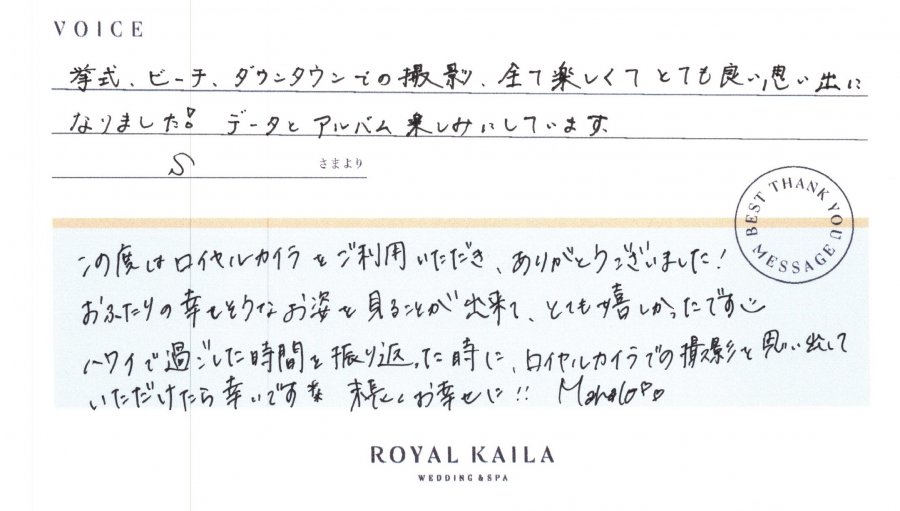 VOICE
挙式、ビーチ、ダウンタウンでの撮影、全て楽しくてとても良い思い出に
なりました! データとアルバム楽しみにしています。
S さまより
BEST THANK YOU MESSAGE
この度はロイヤルカイラをご利用いただき、ありがとうございました!
おふたりの幸せそうなお姿を見ることが出来て、とても嬉しかったです
ハワイで過ごした時間を振り返った時に、ロイヤルカイラでの撮影を思い出して
いただけたら幸いです 末長くお幸せに!! Mahalo
ROYAL KAILA
WEDDING & SPA